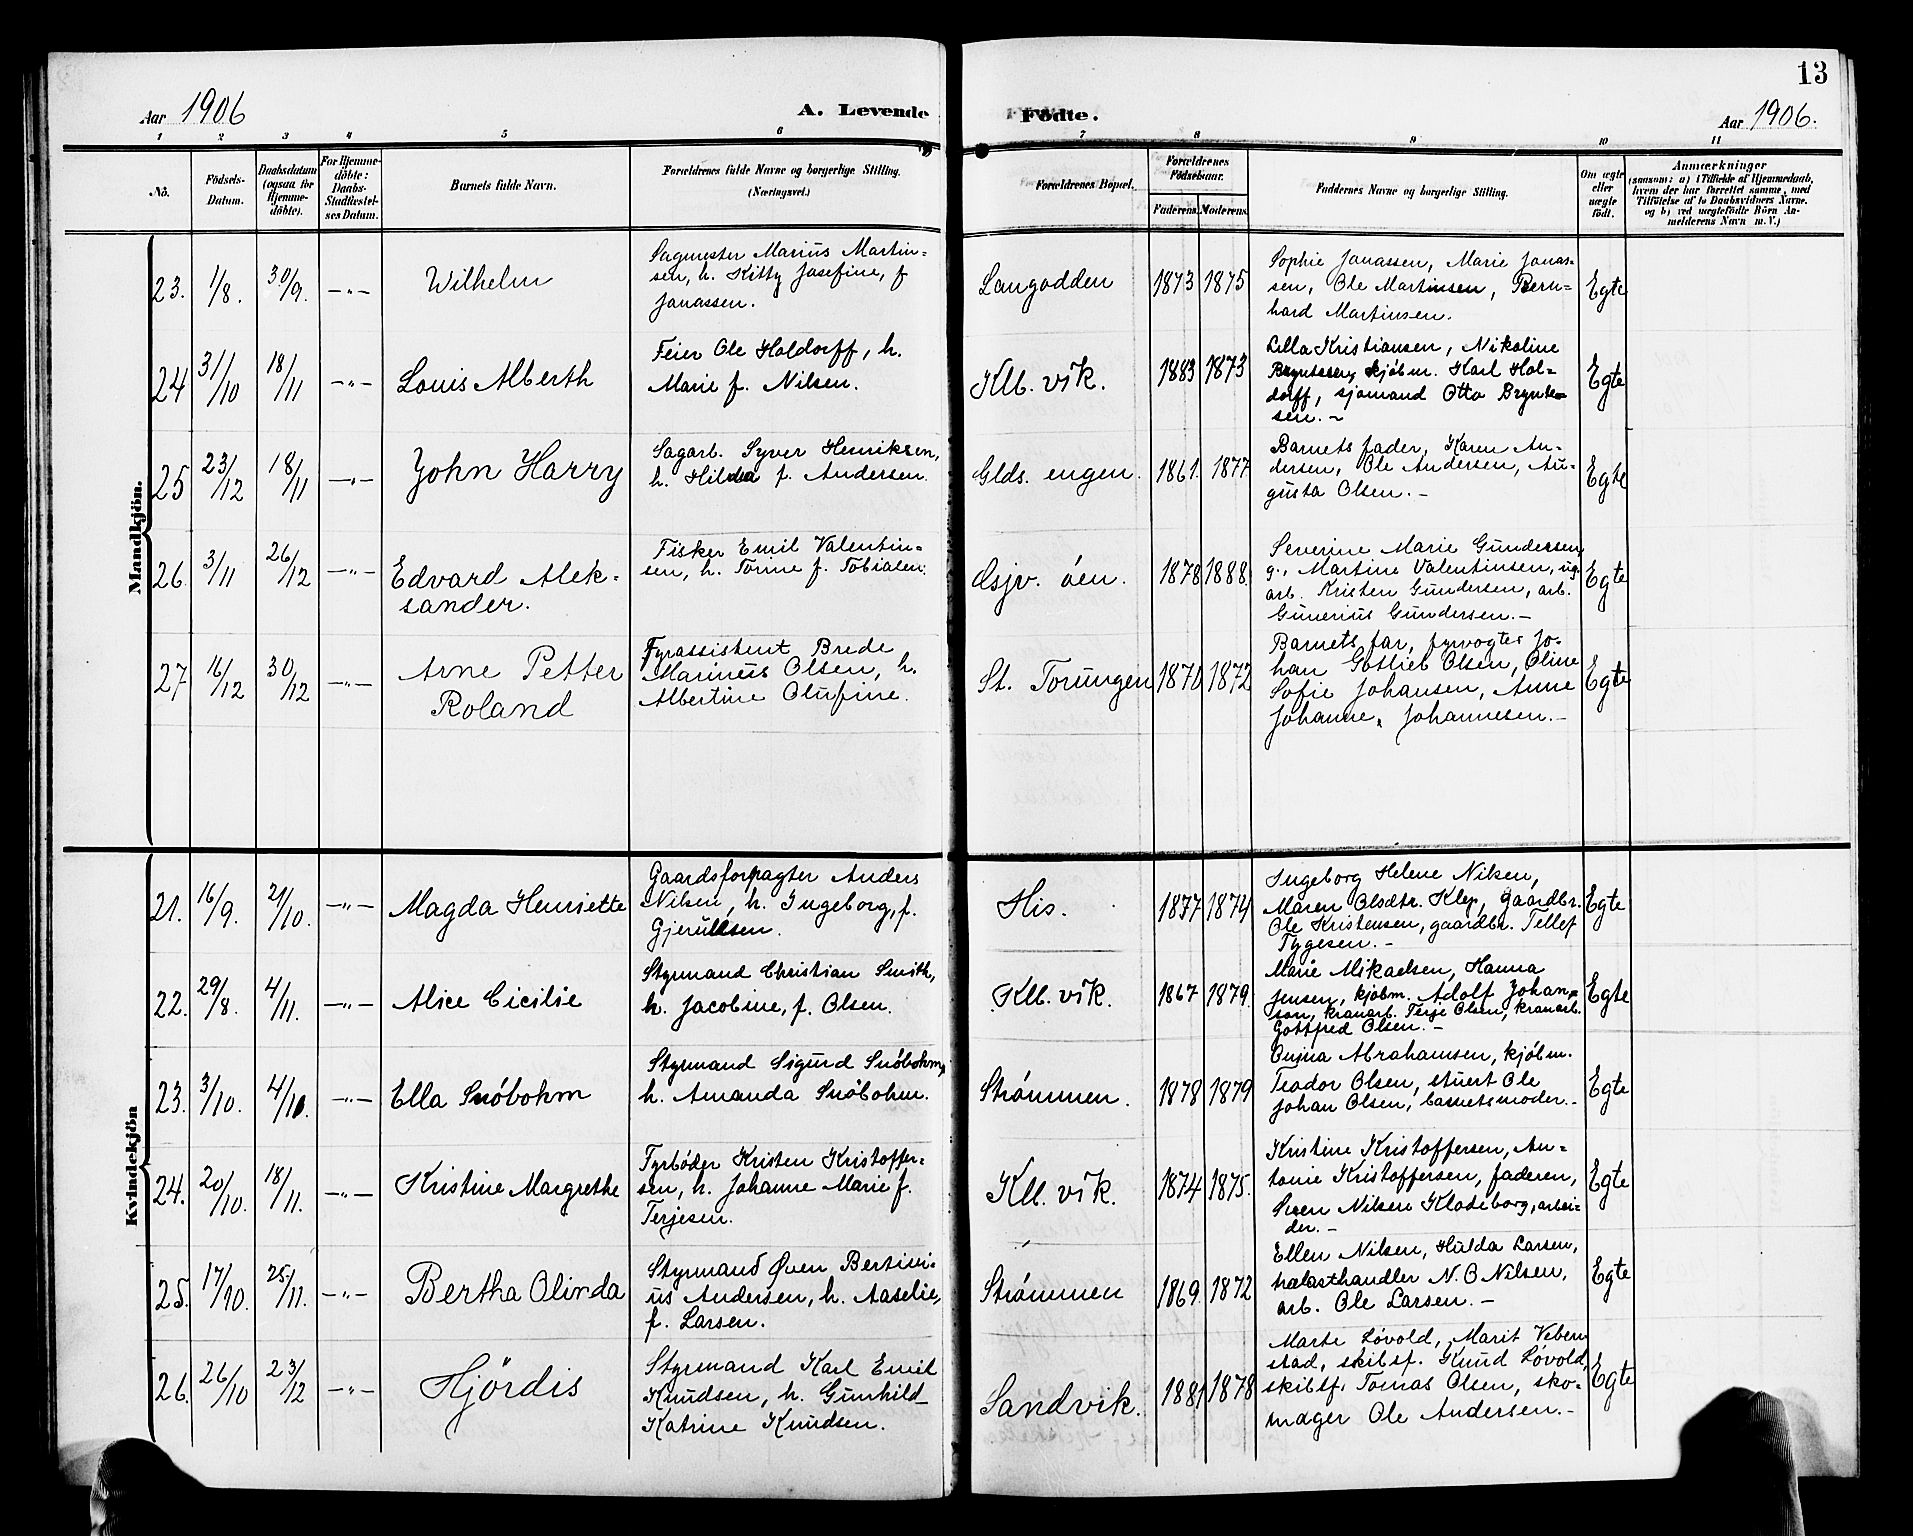 Aar 1906
A. Levende
Födte.
13
Aar 1906.
1 2 3 4 5 6 7 8 9 10 11
No.
Födsels-
Datum.
Daabsdatum
(ogsaa for
Hjemme-
döbte).
For Hjemme-
döbte:
Daabs-
Stadfæstel-
ses Datum.
Barnets fulde Navn.
Forældrenes fulde Navne og borgerlige Stilling.
(Næringsvei.)
Forældrenes Bopæl.
Forældrenes
Födselsaar.
Faderens. Moderens.
Faddernes Navne og borgerlige Stilling.
Om ægte
eller
uægte
födt.
Anmærkninger
(saasom: a) i Tilfælde af Hjemmedaab,
hvem der har forrettet samme, med
Tilföielse af to Daabsvidners Navne.
og b) ved uægtefödte Börn An-
melderens Navn m. V.)
Mandkjön.
23. 1/8. 30/9. —"— Wilhelm
Sagmester Marius Martin-
sen, h. Kitty Josefine, f
Jonassen.
Langodden 1873 1875
Sophie Jonassen, Marie Jonas-
sen, Ole Martinsen, Bern-
hard Martinsen.
Egte
24 31/10 18/11 —"— Louis Alberth
Feier Ole Holdorff, h.
Marie f. Nilsen.
Klb. vik. 1883 1873
Lilla Kristiansen, Nikoline
Bryntesen, skjöbm. Karl Hol-
dorff, sjømand Otto Brynte-
sen. -
Egte
25 23/12 18/11 —"— John Harry
Sagarb. Syver Henriksen,
h. Hilda f. Andersen.
Glds. engen. 1861. 1877
Barnets fader, Karen An-
dersen, Ole Andersen, Au-
gusta Olsen. -
Egte
26. 3/11 26/12 —"— Edvard Alek-
sander.
Fisker Emil Valentin-
sen, h. Tomine f. Tobiasen.
Osjv. öen. 1878 1888
Severine Marie Gundersen,
g., Martine Valentinsen, ug.
arb. Kristen Gundersen, arb.
Gunerius Gundersen. -
Egte
27 16/12 30/12 —"— Arne Petter
Roland
Fyrassistent Brede
Marinius Olsen, h.
Albertine Olufine.
St. Torungen 1870 1872
Barnets far, fyrvogter Jo-
han Gotlieb Olsen, Oline
Sofie Johansen, Anne
Johanne, Johannesen. -
Egte
Kvindekjön
21. 16/9. 21/10. —"— Magda Henriette
Gaardsforpagter Anders
Nilsen, h. Ingeborg, f.
Gjerulfsen.
His. 1877 1874
Ingeborg Helene Nilsen,
Maren Olsdtr. Klep, gaardbr.
Ole Kristensen, gaardbr. Tellef
Tygesen. -
Egte
22. 29/8. 4/11. —"— Alice Cicilie
Styrmand Christian Smith,
h. Jacobine, f. Olsen.
Kll. vik. 1867 1879.
Marie Mikaelsen, Hanna
Jensen, kjöbm. Adolf Johan-
son, kranarb. Terje Olsen, kranarb.
Gottfred Olsen. -
Egte
23. 3/10. 4/10. —"— Ella Snöbohm
Styrmand Sigurd Snöbohm,
h. Amanda Snöbohm.
Strømmen. 1878 1879
Abrahamsen, kjöbm.
Teodor Olsen, stuert Ole
Johan Olsen, barnets moder. -
Egte
24. 20/10. 18/11. —"— Kristine Margrethe
Fyrböder Kristen Kristoffer-
sen, h. Johanne Marie f.
Terjesen.
Kll. vik. 1874 1875.
Kristine Kristoffersen, An-
tonie Kristoffersen, faderen,
Sven Nilsen Klodeborg, arbei-
der. -
Egte
25. 17/10. 25/11. —"— Bertha Olinda
Styrmand Øven Bertini-
us Andersen, h. Aaselie,
f. Larsen.
Strømmen 1869. 1872
Ellen Nilsen, Hulda Larsen,
trælasthandler N. O Nilsen,
arb. Ole Larsen. -
Egte
26. 26/10 23/12 —"— Hjördis
Styrmand Karl Emil
Knudsen, h. Gunhild
Katrine Knudsen.
Sandvik. 1881 1878
Marte Løvold, Marit Veben
stad, skibsf. Knud Løvold,
skibsf. Tomas Olsen, sko-
mager Ole Andersen. -
Egte